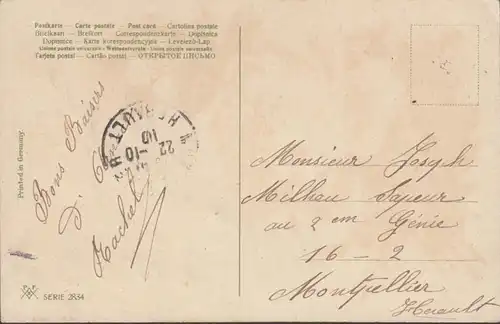 Postkarte — Carte postale — Post card — Cartolina postale
Böckaan — Brefkort — Correspondenzkarte — Dopisnica
Dopisnice — Karta korespondencyjna — Levelezö-Lap
Unione postale universale — Weltpostverein — Union postale universelle
Tarjeta postal — Cartão postal — ОТКРЫТОЕ ПИСЬМО
Printed in Germany.
Bons Baisers
Rachel
HERAULT
22
10
-10
Monsieur Joseph
Milhau Sapeur
au 2 em Génie
16 - 2
Montpellier
Herault
SERIE 2834